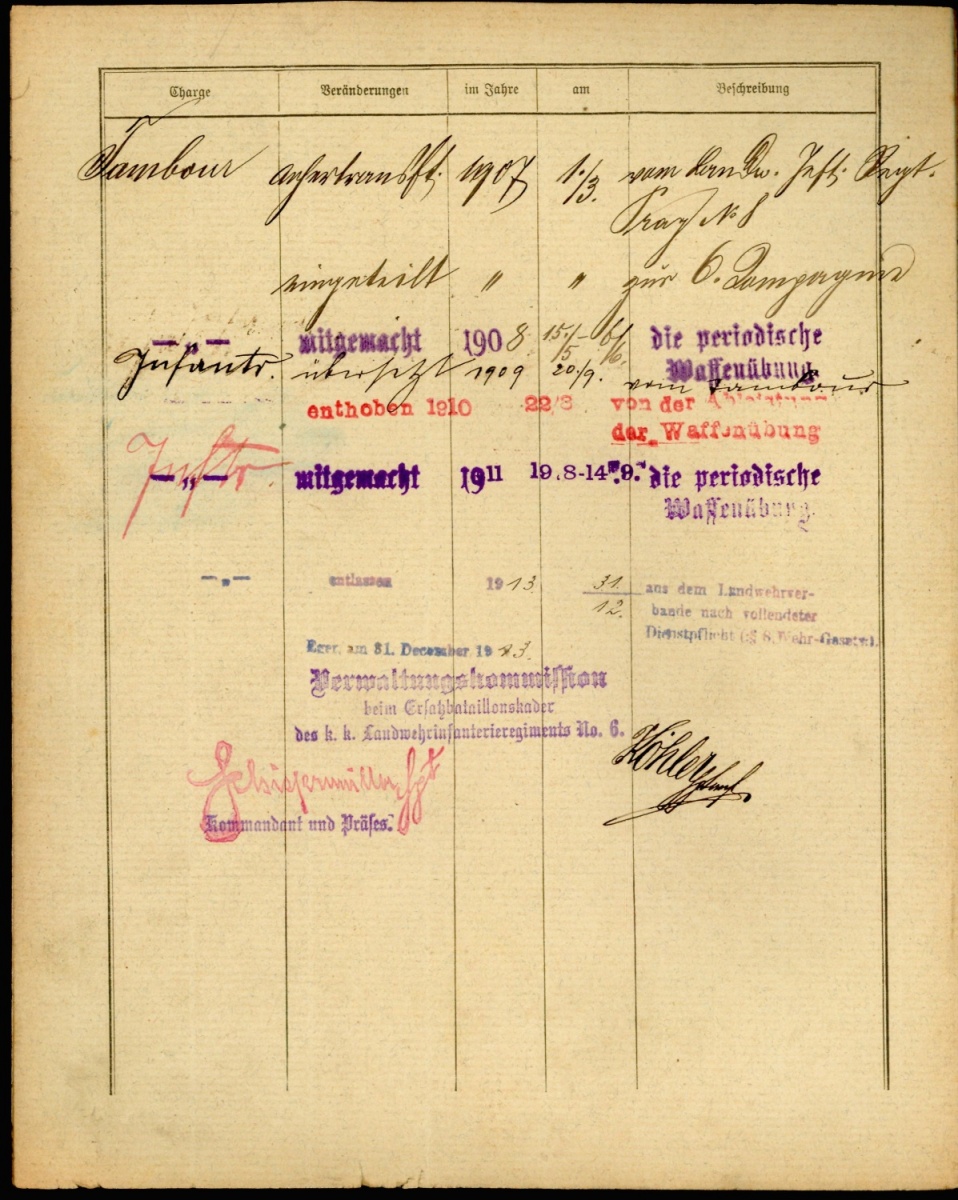 Charge Veränderungen im Jahre am Beschreibung
Tambour anhertransft. 1907 1./3. vom Landw. Inft. Regt.
Prag No 8
eingeteilt " " zur 6. Compagnie
—„— mitgemacht 1908 15./5 – 6/6. die periodische
Waffenübung
Infantr. übersetzt 1909 20./9. vom Tambour
enthoben 1910 22/8 von der Ableistung
der Waffenübung
Inftr.
—„— mitgemacht 1911 19.8-14.9. die periodische
Waffenübung.
—„— entlassen 1913. 31./12. aus dem Landwehrver-
bande nach vollendeter
Dienstpflicht (§ 8, Wehr-Gesetz).
Eger, am 31. December 1913.
Verwaltungskommission
beim Ersatzbataillonskader
des k. k. Landwehrinfanterieregiments No. 6.
Köhler
Kommandant und Präses.